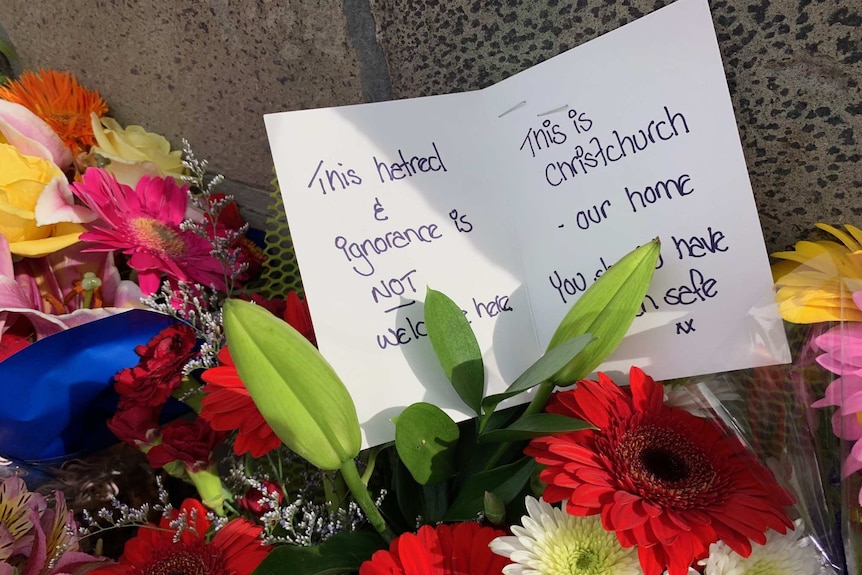 This hatred
&
ignorance is
NOT
welcome here
This is
christchurch
- our home
You have
safe
xx